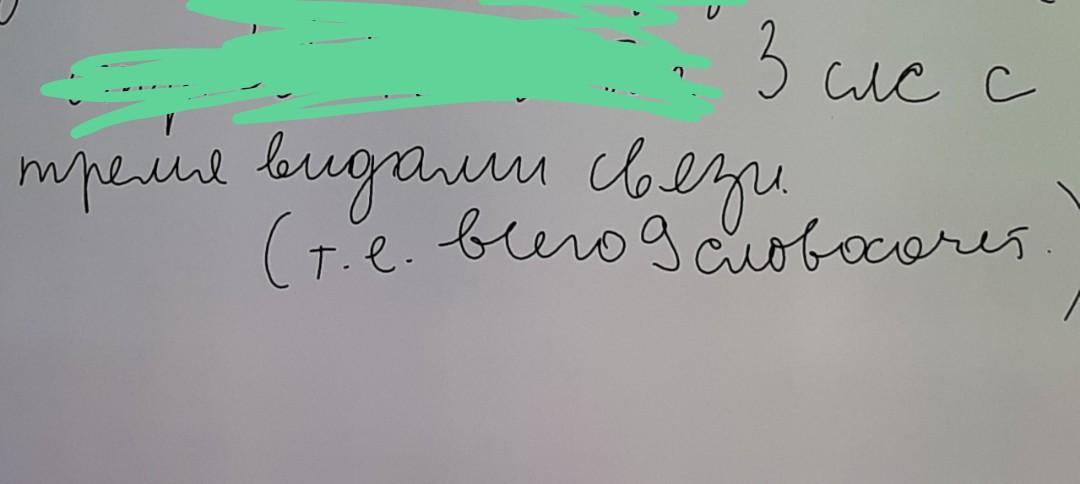 3 слс с
тремя видами связи.
(т.е. всего 9 словосочет.)